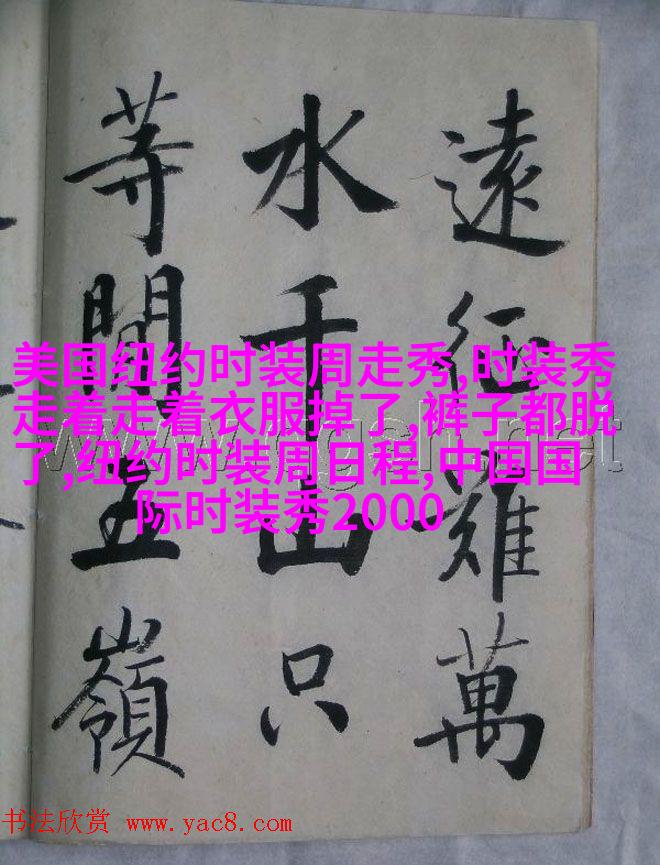 遠征難萬
水千山只
等閒五嶺
美国纽约时装周走秀,时装秀
走着走着衣服掉了,裤子都脱
了,纽约时装周日程,中国国
际时装秀2000
书法欣赏 www.yac8.com